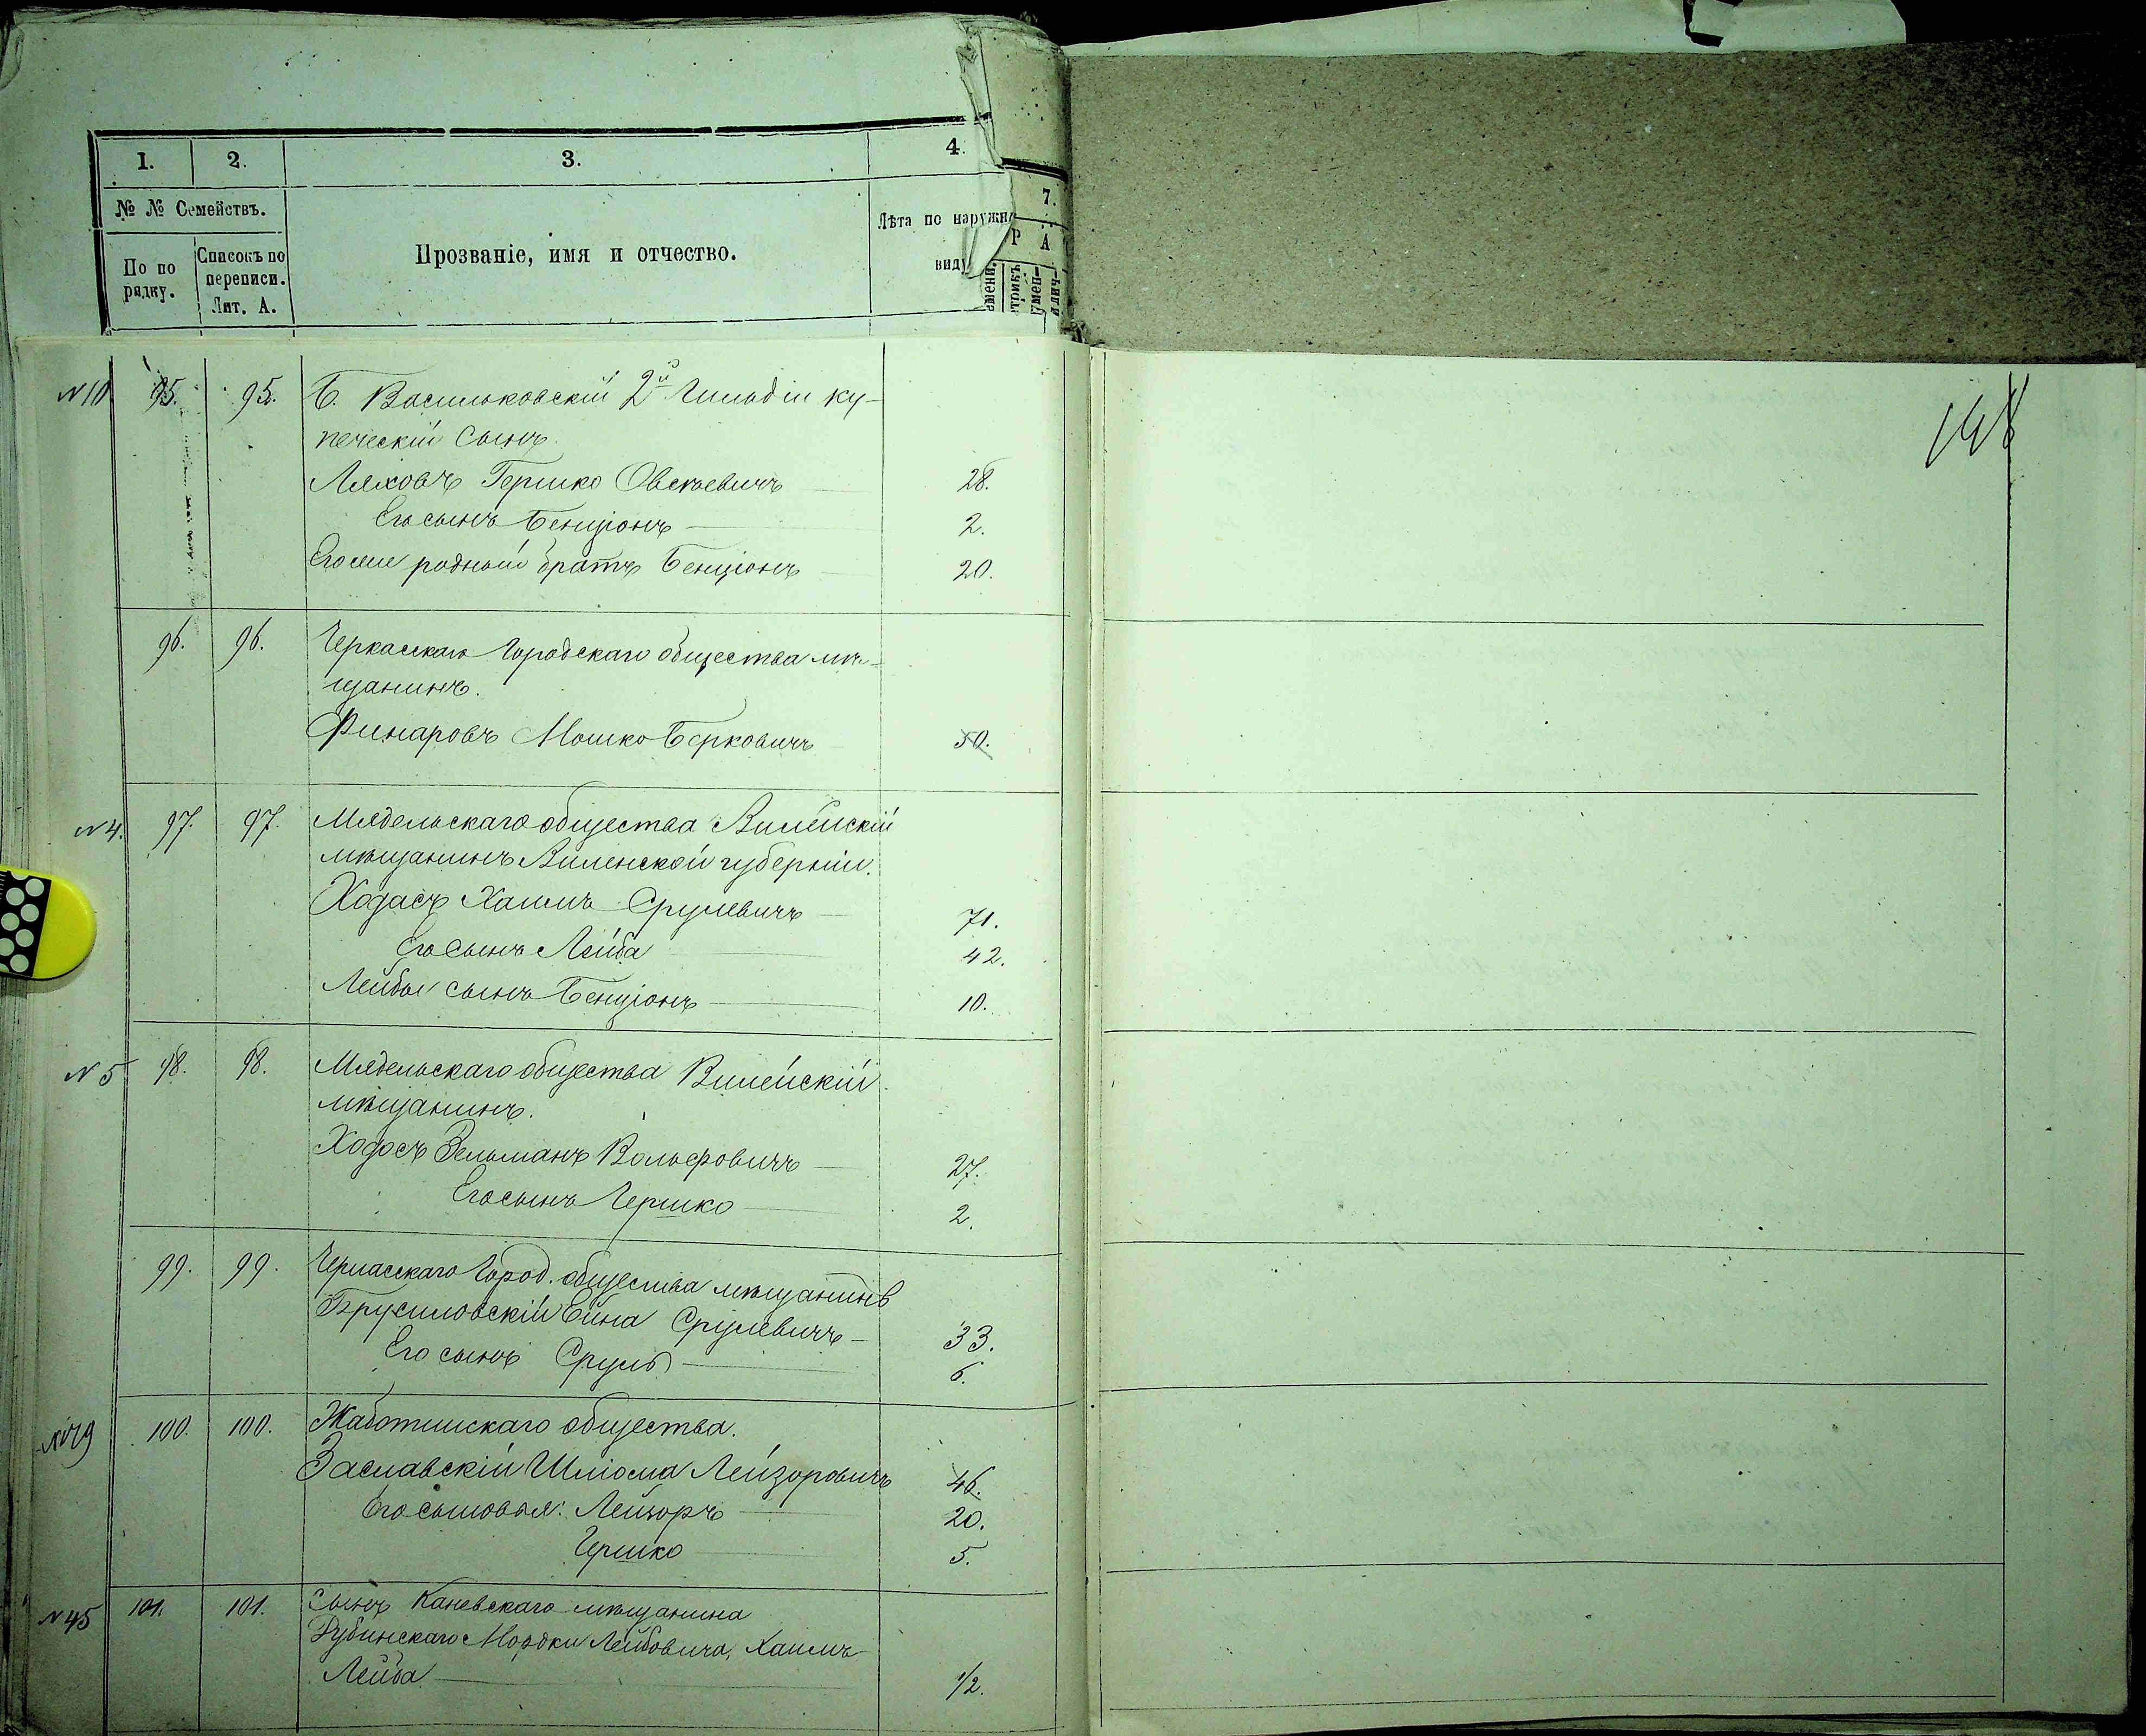 1. 2. 3. 4.
7.
№ № Семействъ.
По по рядку.
Списокъ по переписи. Лит. А.
Прозваніе, имя и отчество.
Лѣта по наружн
виду
Р А
N 10 95. 95. Б. Васильковскій 2й Гильдіи ку-
печескій сынъ
Ляховъ Гершко Овсѣевичъ 28.
Его сынъ Бенціонъ 2.
Его же родный братъ Бенціонъ 20.
96. 96. Черкасскаго Городскаго общества мѣ-
щанинъ.
Финаровъ Мошко Берковичъ 50.
N 4. 97. 97. Мядельскаго общества Вилейскій
мѣщанинъ Виленской губерніи.
Ходасъ Хаимъ Срулевичъ 71.
Его сынъ Лейба 42.
Лейбы сынъ Бенціонъ 10.
N 5 98. 98. Мядельскаго общества Вилейскій
мѣщанинъ.
Ходосъ Зельманъ Вольфовичъ 27.
Его сынъ Гершко 2.
99. 99. Черкасскаго Город. общества мѣщанинъ
Брусиловскій Ейна Срулевичъ 33.
Его сынъ Сруль 6.
100. 100. Жаботинскаго общества.
Заславскій Шліома Лейзоровичъ 46.
Его сыновья: Лейзоръ 20.
Гершко 5.
N 45 101. 101. Сынъ Каневскаго мѣщанина
Рубинскаго Мордки Лейбовича, Хаимъ
Лейба 1/2.